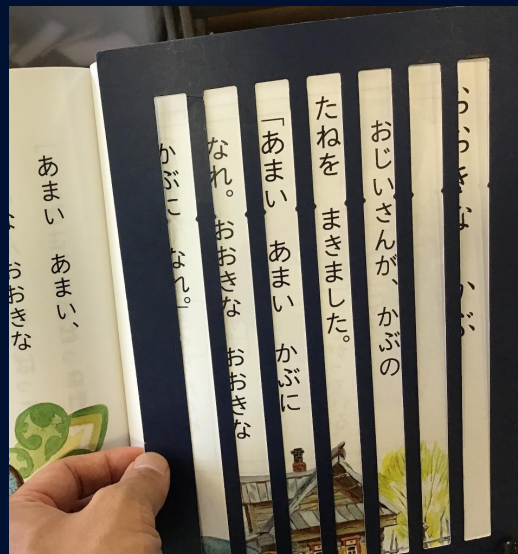 おおきな　かぶ
おじいさんが、かぶの
たねを　まきました。
「あまい　あまい　かぶに
なれ。おおきな　おおきな
かぶに　なれ。」
あまい　あまい、
おおきな